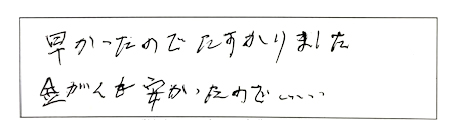 早かったのでたすかりました
金がくも安かったので、、、、